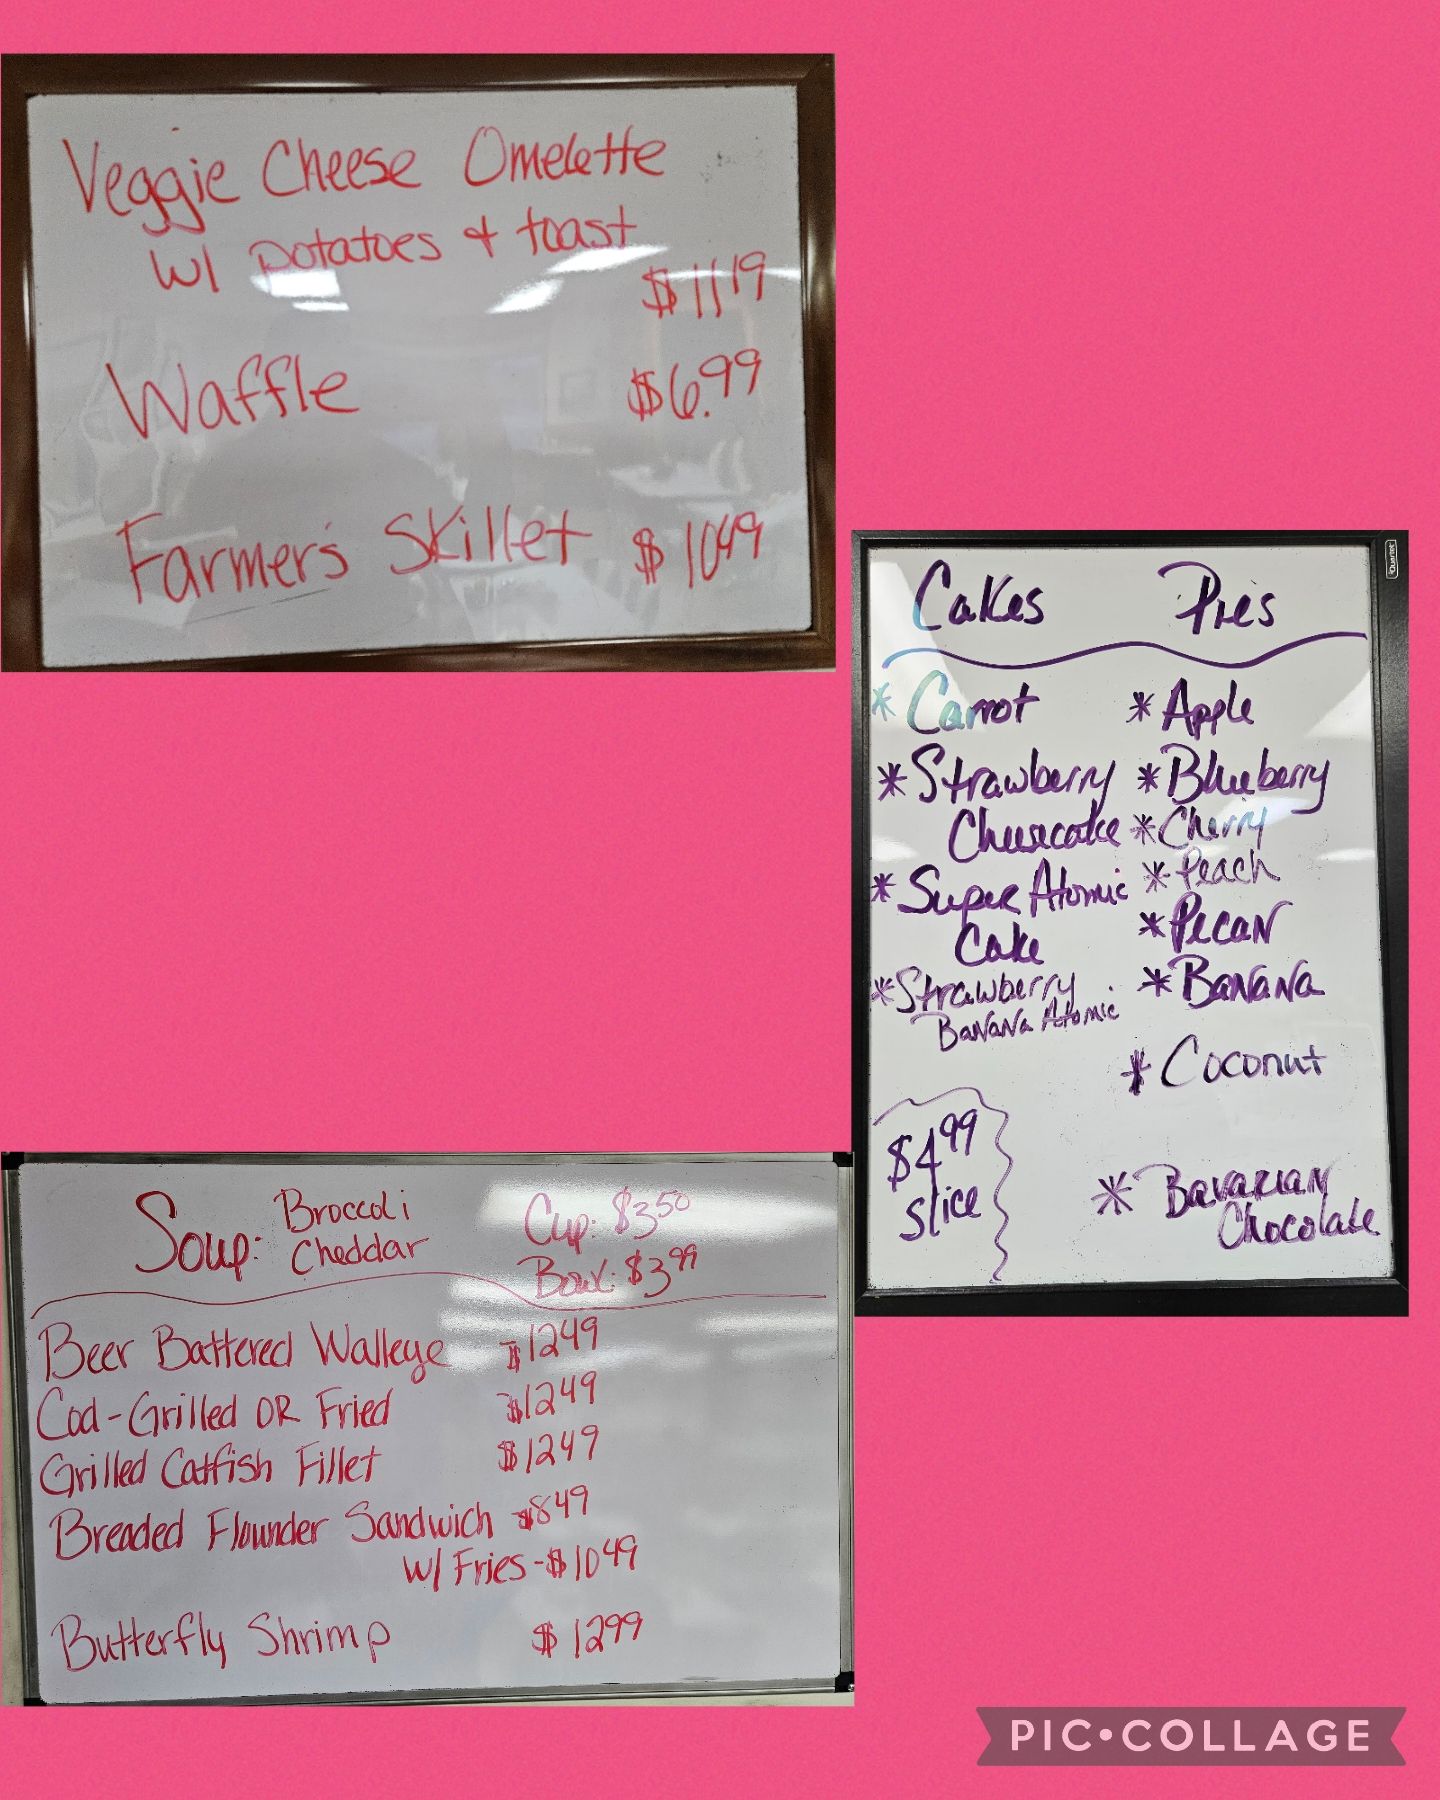 Veggie Cheese Omelette
W/ potatoes & toast
$11.19
Waffle $6.99
Farmer's Skillet $10.49
Cakes Pies
* Carrot
* Strawberry
Cheesecake
* Super Atomic
Cake
* Strawberry
Banana Atomic
$4.99
slice
* Apple
* Blueberry
* Cherry
* Peach
* Pecan
* Banana
* Coconut
* Bavarian
Chocolate
Quartet
Soup: Broccoli
Cheddar
Cup: $3.50
Bowl: $3.99
Beer Battered Walleye - $12.49
Cod - Grilled OR Fried $12.49
Grilled Catfish Fillet $12.49
Breaded Flounder Sandwich - $8.49
W/ Fries - $10.49
Butterfly Shrimp $12.99
PIC•COLLAGE